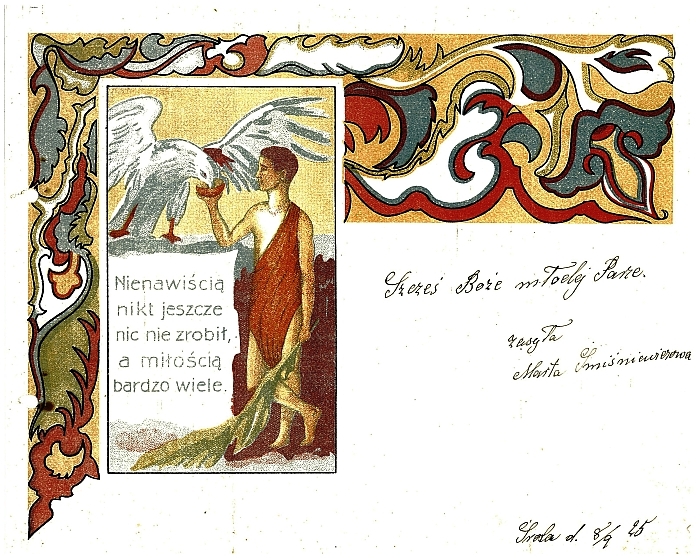 Nienawiścią
nikt jeszcze
nic nie zrobił,
a miłością
bardzo wiele.
Szczęś Boże młodej Parze.
zasyła
Marta
d. 8/9 25